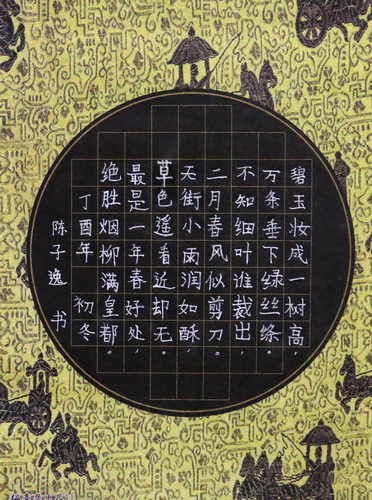 碧玉妆成一树高，
万条垂下绿丝绦。
不知细叶谁裁出，
二月春风似剪刀。
天街小雨润如酥，
草色遥看近却无。
最是一年春好处，
绝胜烟柳满皇都。
丁酉年 初冬
陈子逸 书